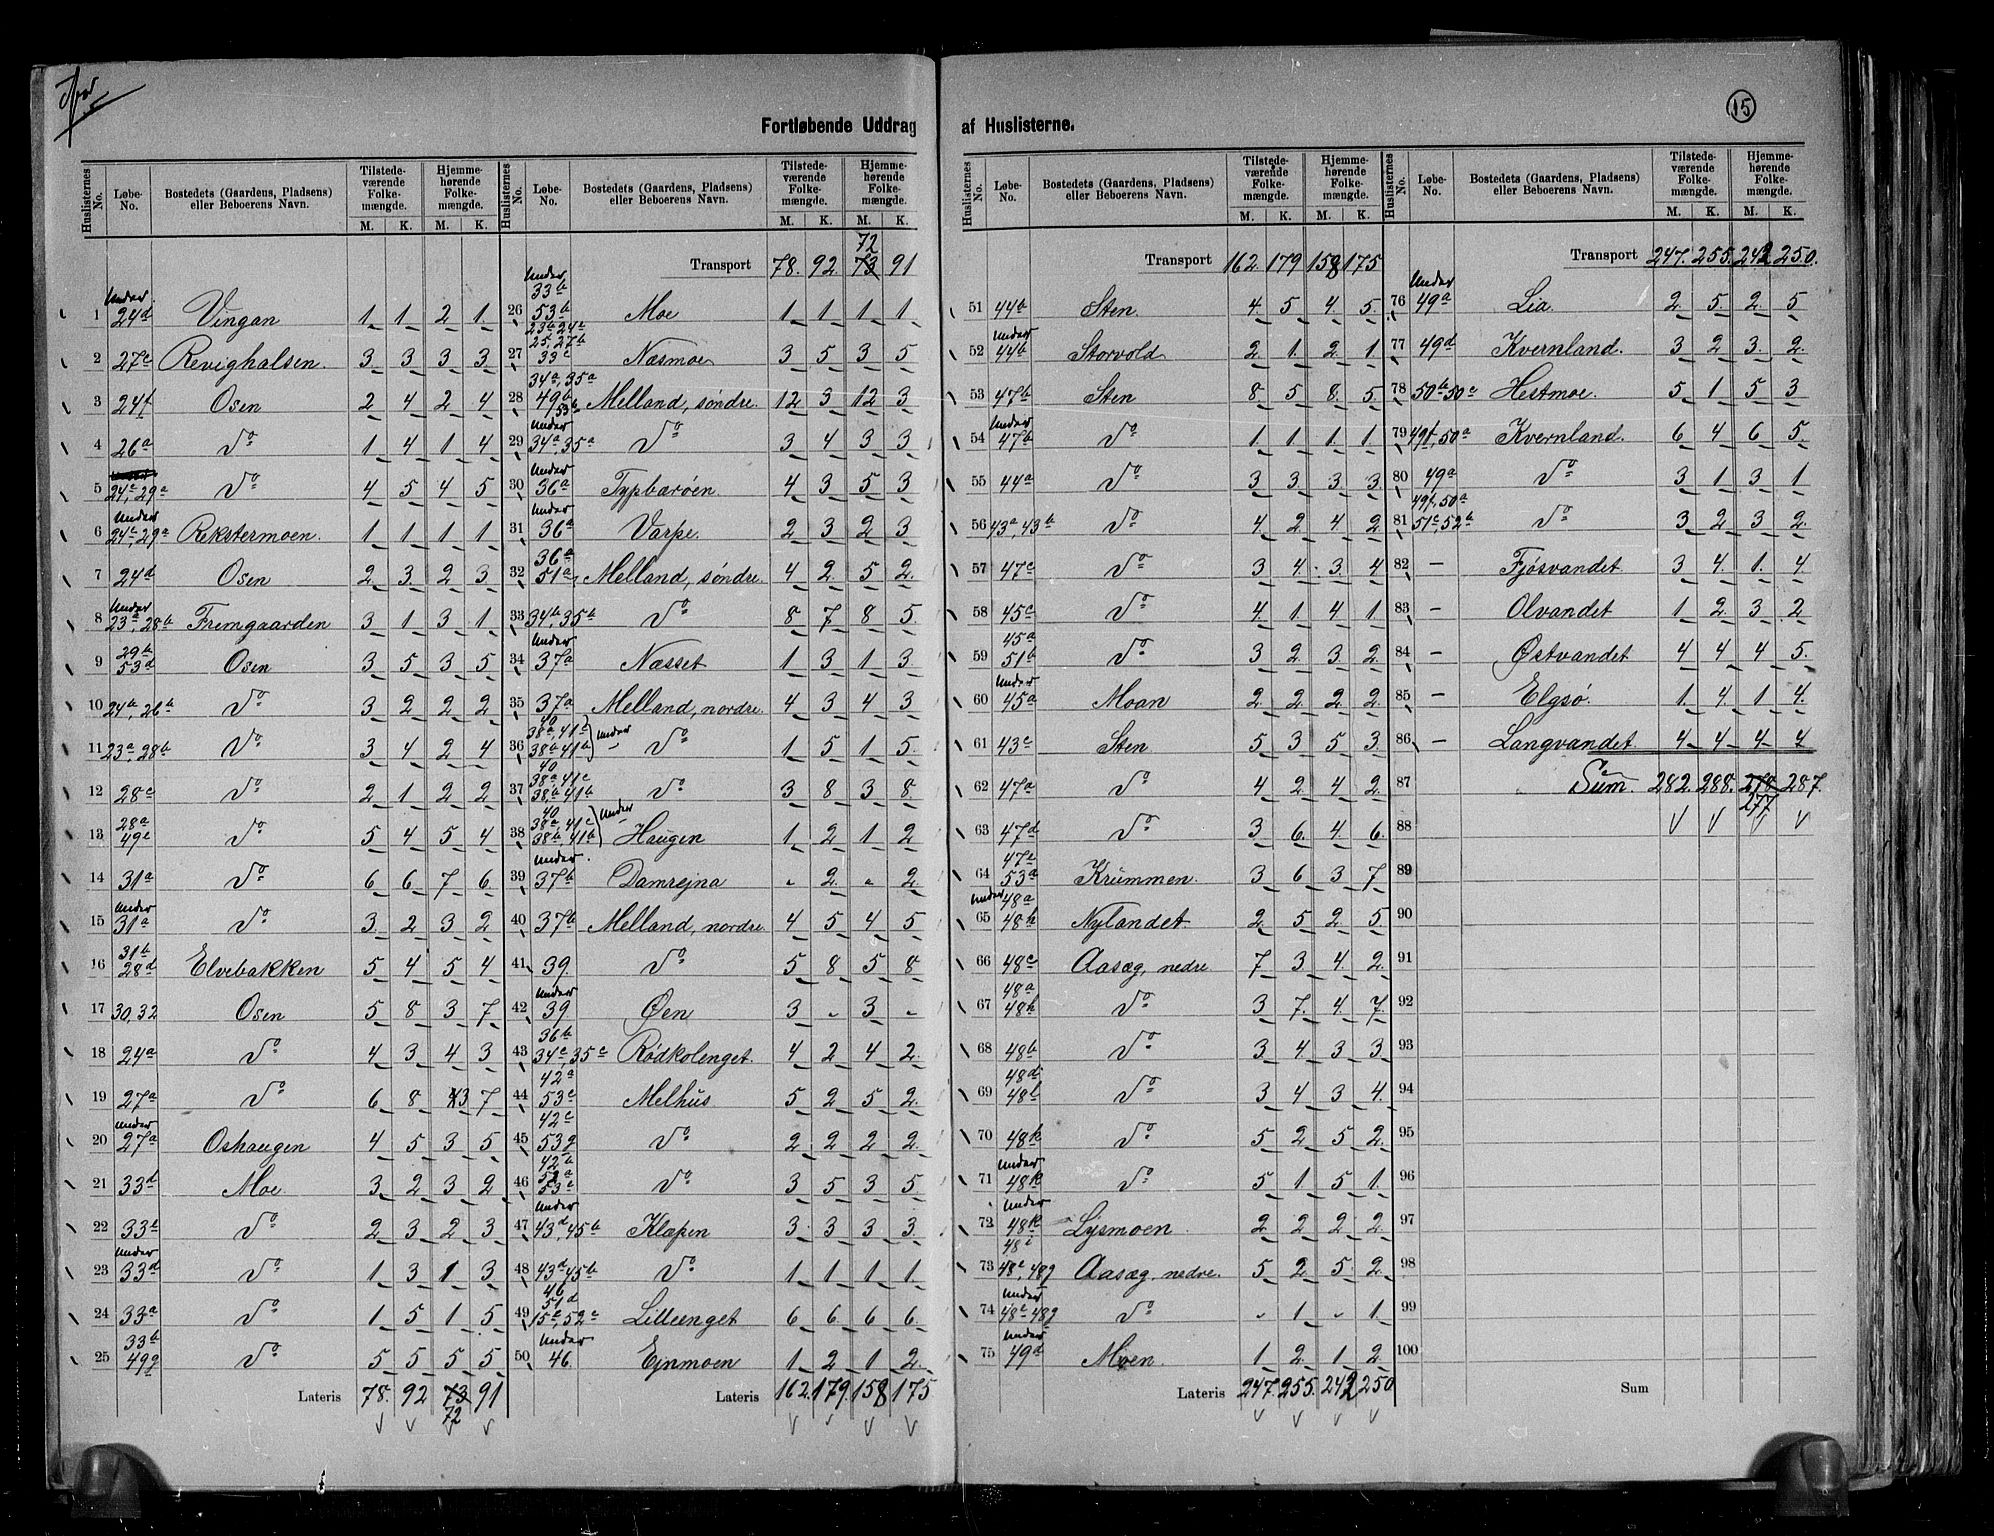 15
Fortløbende Uddrag af Huslisterne.
Huslisternes No. Løbe-No. Bostedets (Gaardens, Pladsens) eller Beboerens Navn. Tilstedeværende Folkemængde. M. K. Hjemmehørende Folkemængde. M. K.
1 Under 24d Vingan 1 1 2 1
2 27c Revighalsen. 3 3 3 3
3 24f Osen 2 4 2 4
4 26a Do 1 4 1 4
5 24e, 29a Do 4 5 4 5
6 Under 24e, 29a Rekstermoen. 1 1 1 1
7 24d Osen 2 3 2 3
8 Under 23a, 28b Fremgaarden 3 1 3 1
9 29b 53d Osen 3 5 3 5
10 24b, 26b Do 3 2 2 2
11 23a, 28b Do 3 4 2 4
12 28c Do 2 1 2 2
13 28a 49c Do 5 4 5 4
14 31a Do 6 6 7 6
15 Under 31a Do 3 2 3 2
16 31b 28d Elvebakken 5 4 5 4
17 30, 32 Osen 5 8 3 7
18 24a Do 4 3 4 3
19 27a Do 6 8 3 7
20 Under 27a Oshaugen 4 5 3 5
21 33d Moe 3 2 3 2
22 33b Do 2 3 2 3
23 Under 33d Do 1 3 1 3
24 33a Do 1 5 1 5
25 33b 49g Do 5 5 5 5
Lateris 78. 92 73 91
72
Huslisternes No. Løbe-No. Bostedets (Gaardens, Pladsens) eller Beboerens Navn. Tilstedeværende Folkemængde. M. K. Hjemmehørende Folkemængde. M. K.
72
Transport 78. 92 73 91
26 Under 33b 53b Moe 1 1 1 1
27 23b, 24c 25, 27b 33c Næsmoe 3 5 3 5
28 34a, 35a 49b 53b Melland, søndre. 12 3 12 3
29 Under 34a, 35a Do 3 4 3 3
30 Under 36a Typbarøen 4 3 5 3
31 Under 36a Varpe. 2 3 2 3
32 36a 51a Melland, søndre. 4 2 5 2
33 34b 35b Do 8 7 8 5
34 Under 37a Næsset 1 3 1 3
35 37a Melland, nordre. 4 3 4 3
36 40 38a, 41c 38b, 41b Under Do 1 5 1 5
37 40 38a, 41c 38b, 41b Do 3 8 3 8
38 40 38a, 41c 38b, 41b Under Haugen 1 2 1 2
39 Under. 37b Damrejna " 2 " 2
40 37b Melland, nordre 4 5 4 5
41 39 Do 5 8 5 8
42 Under 39 Øen 3 - 3 -
43 36b 34c, 35c Rødkolenget. 4 2 4 2
44 42a 53e Melhus 5 2 5 2
45 42c 53g Do 2 2 2 2
46 42b 52a 53c Do 3 5 3 5
47 Under 43d, 45b Klæpen 3 3 3 3
48 43d 45b Do 1 1 1 1
49 46 51d 15c, 52c Lilleenget 6 6 6 6
50 Under 46. Ejnmoen 1 2 1 2
Lateris 162. 179. 158 175
Huslisternes No. Løbe-No. Bostedets (Gaardens, Pladsens) eller Beboerens Navn. Tilstedeværende Folkemængde. M. K. Hjemmehørende Folkemængde. M. K.
Transport 162. 179 158 175
51 44b Sten 4 5 4 5
52 Under 44b Storvold 2 1 2 1
53 47b Sten 8 5 8 5
54 Under 47b Do 1 1 1 1
55 44a Do 3 3 3 3
56 43a, 43b Do 4 2 4 2
57 47c Do 3 4 3 4
58 45c Do 4 1 4 1
59 45a 51b Do 3 2 3 2
60 Under 45a Moan 2 2 2 2
61 43c Sten 5 3 5 3
62 47a Do 4 2 4 2
63 47d Do 3 6 4 6
64 47e 53a Krummen. 3 6 3 7
65 Under 48a 48h Nylandet 2 5 2 5
66 48c Aasæg, nedre 7 3 4 2
67 48a 48h Do 3 7 4 7
68 48b Do 3 4 3 3
69 48d 48l Do 3 4 3 4
70 48k Do 5 2 5 2
71 Under 48k Do 5 1 5 1
72 Under 48k Lysmoen 2 2 2 2
73 48i 48e, 48g Aasæg, nedre. 5 2 5 2
74 Under 48e 48g Do - 1 - 1
75 Under 49d Moen 1 2 1 2
Lateris 247. 255. 242 250
Huslisternes No. Løbe-No. Bostedets (Gaardens, Pladsens) eller Beboerens Navn. Tilstedeværende Folkemængde. M. K. Hjemmehørende Folkemængde. M. K.
Transport 247. 255. 242 250.
76 Under 49a Lia 2 5 2 5
77 49d Kvernland. 3 2 3 2
78 50b 50c Hestmoe. 5 1 5 3
79 49f, 50a Kvernland. 6 4 6 5
80 49a Do 3 1 3 1
81 49f, 50a 51c, 52b Do 3 2 3 2
82 - Fjøsvandet 3 4 1 4
83 - Olvandet 1 2 3 2
84 - Østvandet 4 4 4 5
85 - Elgsø. 1 4 1 4
86 - Langvandet 4 4 4 4
87 Sum. 282. 288. 278 287.
277
88
89
90
91
92
93
94
95
96
97
98
99
100
Sum